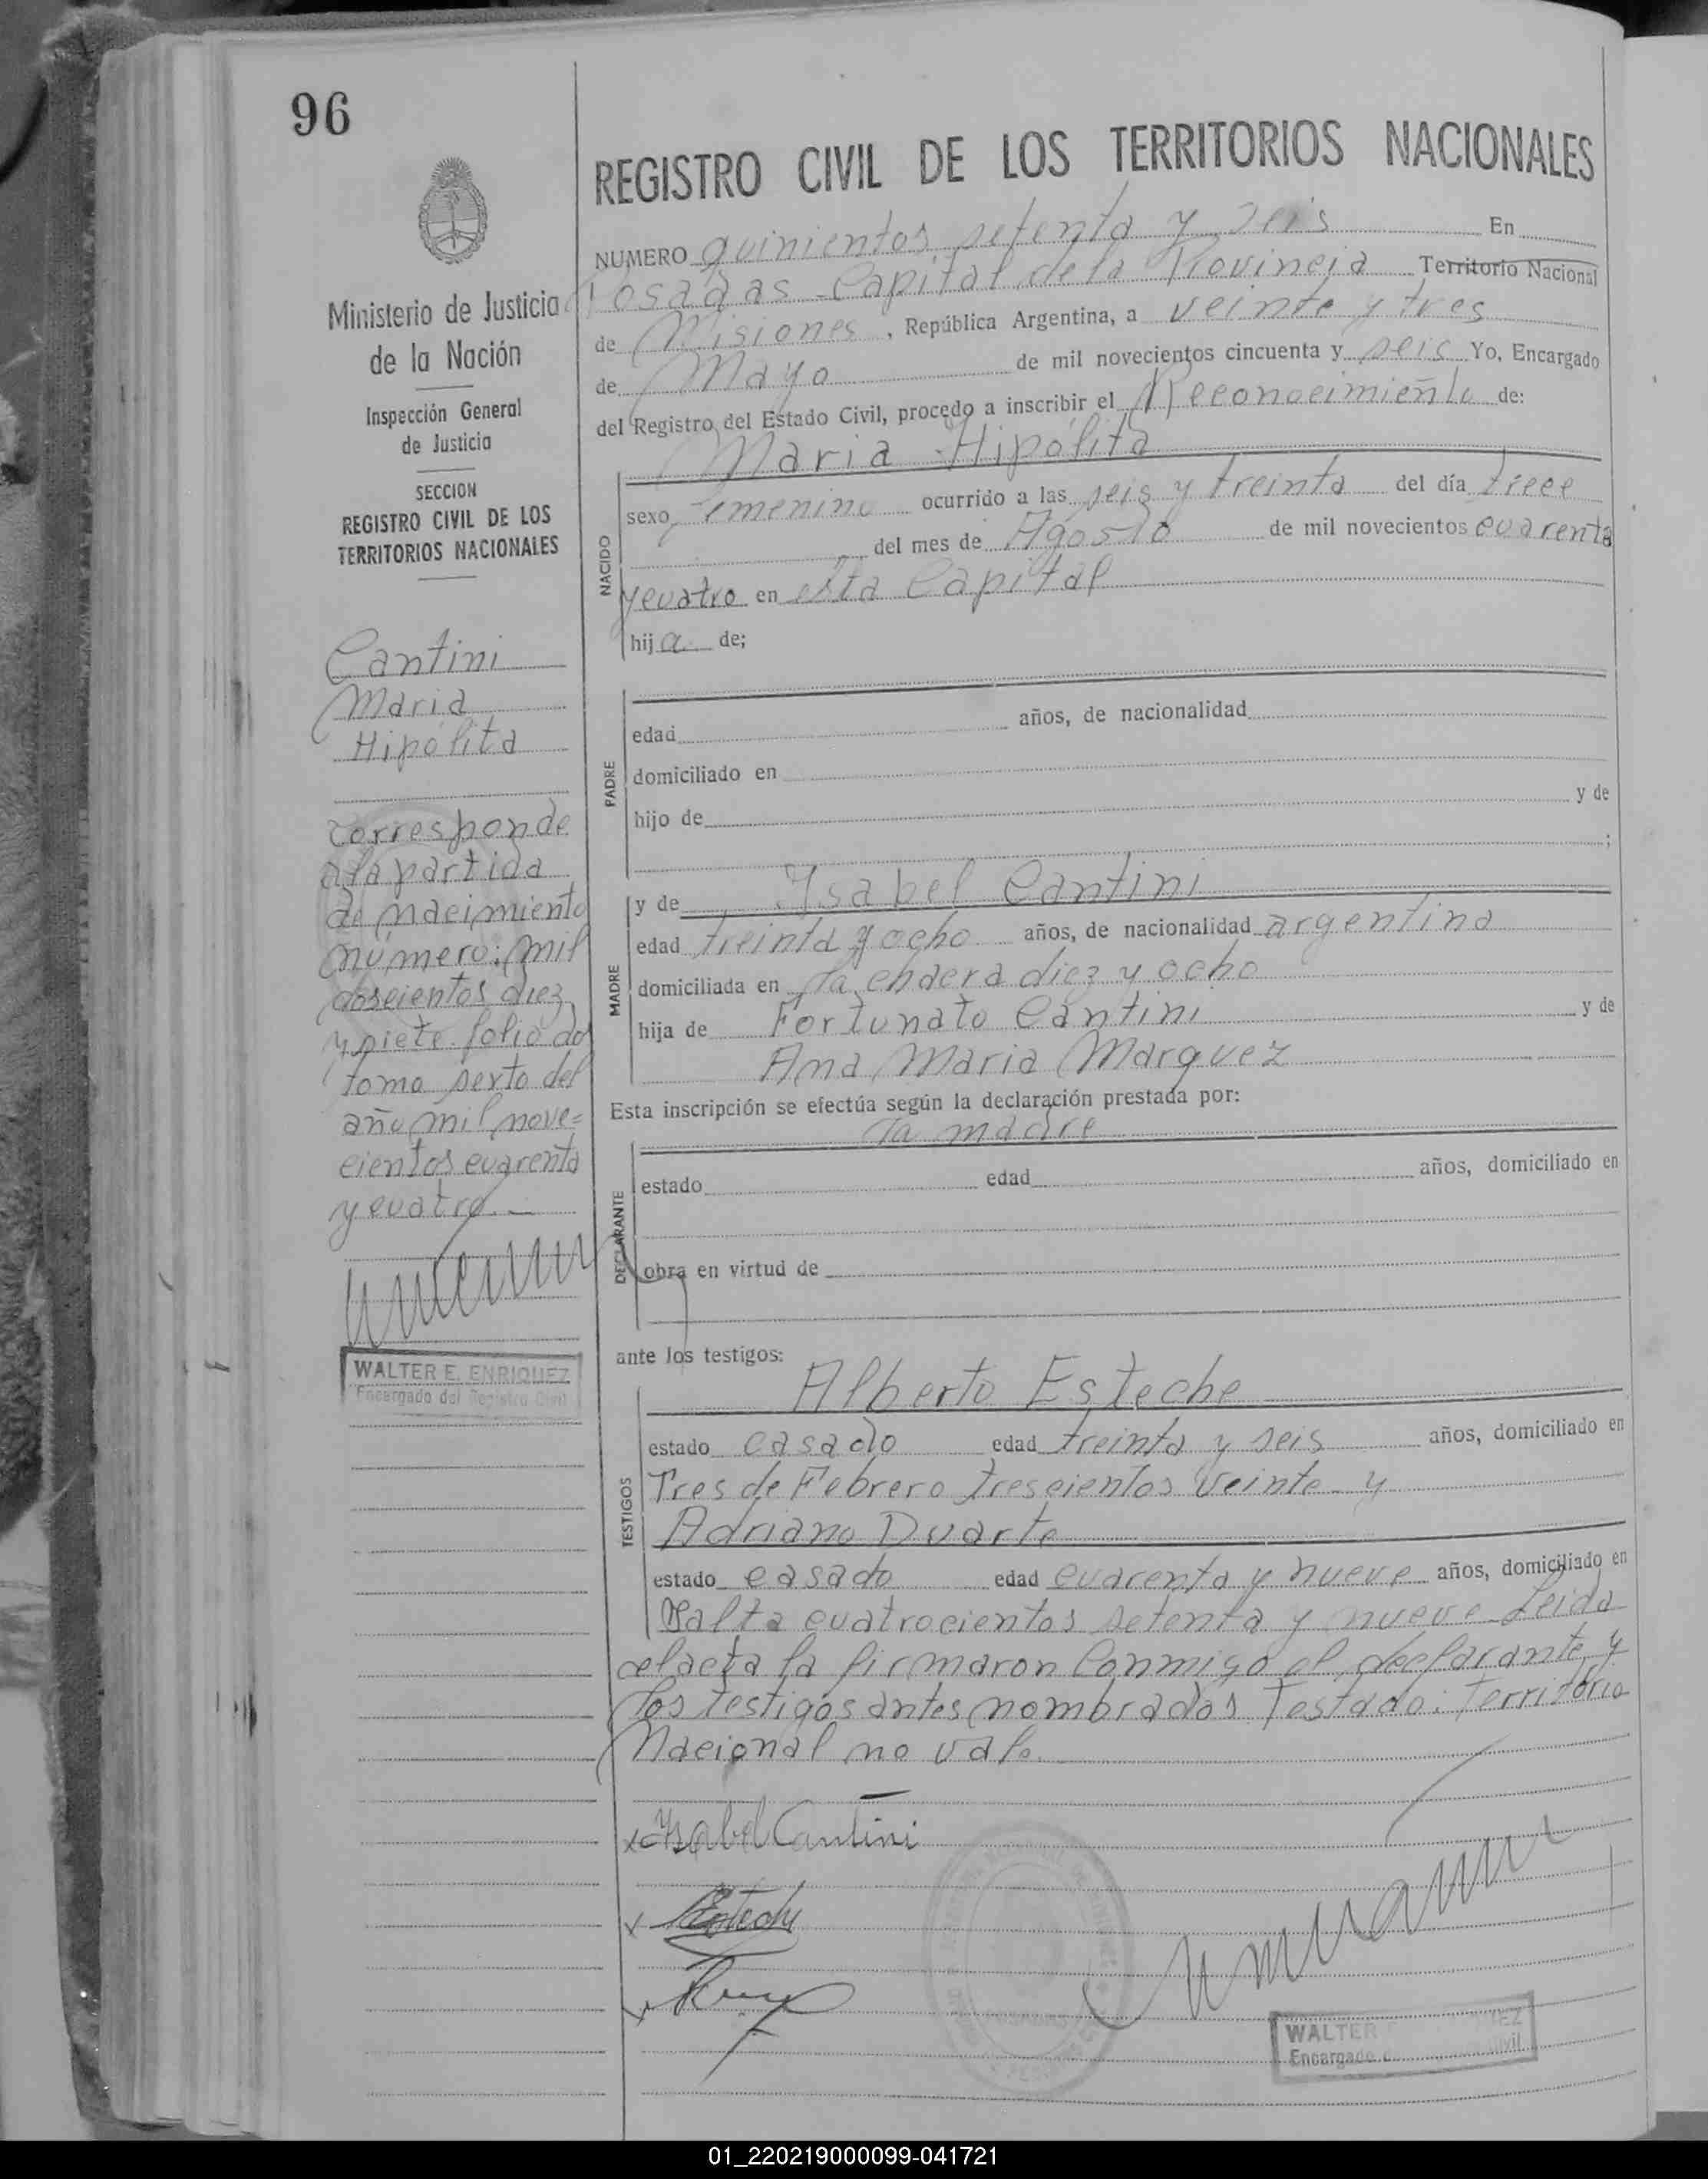 96
REGISTRO CIVIL DE LOS TERRITORIOS NACIONALES
NUMERO quinientos setenta y seis En
Posadas Capital de la Provincia Territorio Nacional
de Misiones, República Argentina, a veinte y tres
de Mayo de mil novecientos cincuenta y seis Yo, Encargado
del Registro del Estado Civil, procedo a inscribir el Reconocimiento de:
Maria Hipólita
NACIDO
sexo femenino ocurrido a las seis y treinta del día trece
del mes de Agosto de mil novecientos cuarenta
y cuatro en esta Capital
hija de;
PADRE
edad años, de nacionalidad
domiciliado en
hijo de y de
;
MADRE
y de Ysabel Cantini
edad treinta y ocho años, de nacionalidad argentina
domiciliada en la chacra diez y ocho
hija de Fortunato Cantini y de
Ana Maria Marquez
Esta inscripción se efectúa según la declaración prestada por:
la madre
DECLARANTE
estado edad años, domiciliado en
obra en virtud de
ante los testigos:
Alberto Esteche
TESTIGOS
estado casado edad treinta y seis años, domiciliado en
Tres de Febrero trescientos veinte y
Adriano Duarte
estado casado edad cuarenta y nueve años, domiciliado en
Salta cuatrocientos setenta y nueve Leida
el acta la firmaron conmigo el declarante y
los testigos antes nombrados Testado: Territorio
Nacional no vale.
Ysabel Cantini
Esteche
WALTER
Encargado Civil
Ministerio de Justicia
de la Nación
Inspección General
de Justicia
SECCION
REGISTRO CIVIL DE LOS
TERRITORIOS NACIONALES
Cantini
Maria
Hipólita
Corresponde
a la partida
de nacimiento
número: mil
doscientos diez
y siete folio dos
tomo sexto del
año mil nove=
cientos cuarenta
y cuatro.—
WALTER E. ENRIQUEZ
Encargado del Registro Civil
01_220219000099-041721